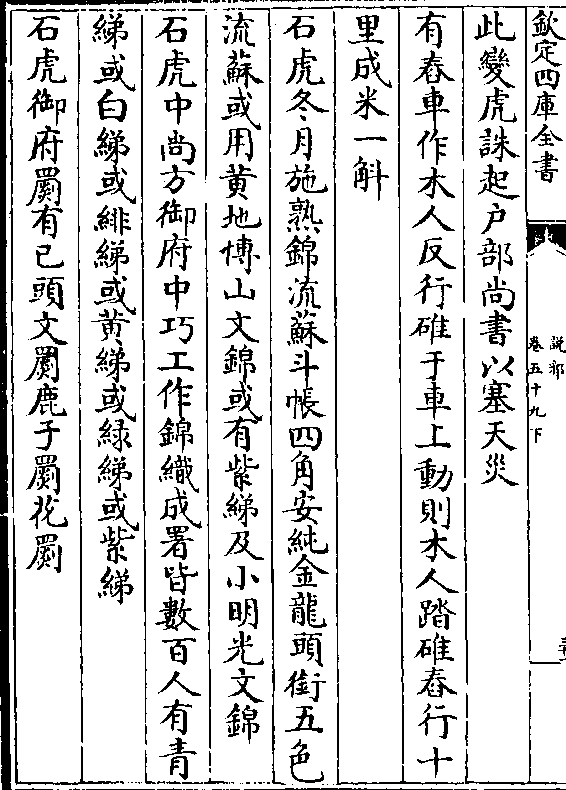 欽定四庫全書
說郛
卷五十九下
此變虎誅起户部尚書以塞天災
有舂車作木人反行碓于車上動則木人踏碓舂行十
里成米一斛
石虎冬月施熟錦流蘇斗帳四角安純金龍頭銜五色
流蘇或用黄地愽山文錦或有紫綈及小明光文錦
石虎中尚方御府中巧工作錦織成署皆數百人有青
綈或白綈或緋綈或黄綈或緑綈或紫綈
石虎御府罽有已頭文罽鹿子罽花罽